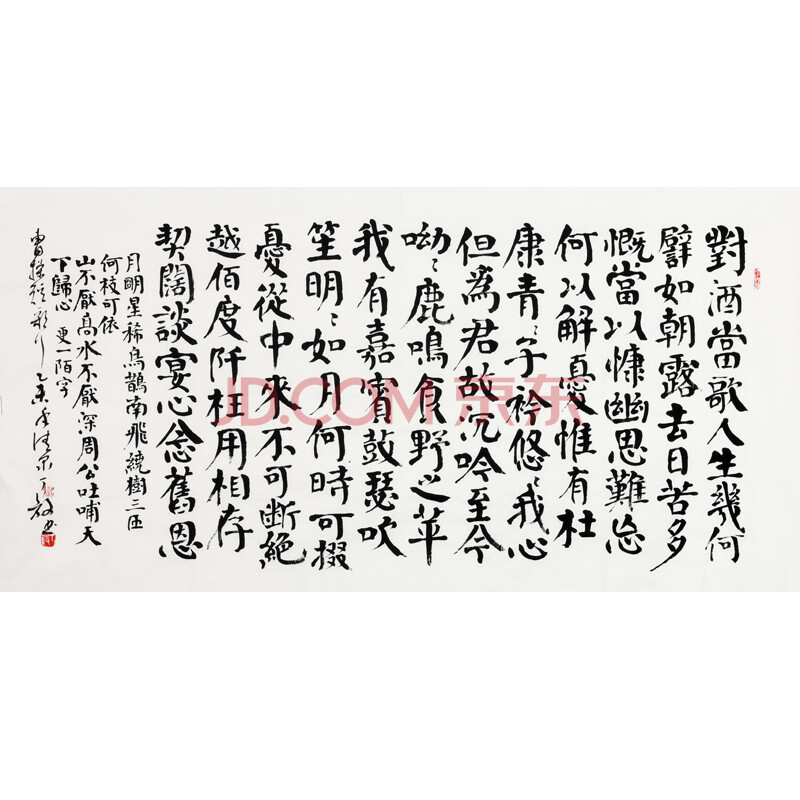 對酒當歌人生幾何
譬如朝露去日苦多
慨當以慷幽思難忘
何以解憂惟有杜
康青〻子衿悠〻我心
但為君故沉吟至今
呦〻鹿鳴食野之苹
我有嘉賓鼓瑟吹
笙明〻如月何時可掇
憂從中來不可断絕
越佰度阡枉用相存
契闊談宴心念舊恩
月明星稀烏鵲南飛繞樹三匝
何枝可依
山不厭高水不厭深周公吐哺天
下歸心 更一陌字
曹操短歌行
JD.COM 京东